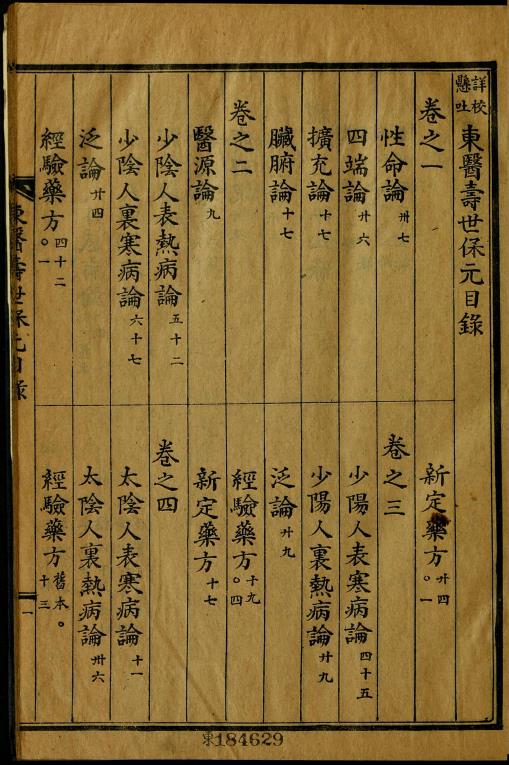 詳校懸吐 東醫壽世保元目錄
卷之一
性命論 卅七
四端論 卄六
擴充論 十七
臟腑論 十七
卷之二
醫源論 九
少陰人表熱病論 五十二
少陰人裏寒病論 六十七
泛論 卄四
經驗藥方 四十二 ○一
新定藥方 卄四 ○一
卷之三
少陽人表寒病論 四十五
少陽人裏熱病論 卄九
泛論 卄九
經驗藥方 十九 ○四
新定藥方 十七
卷之四
太陰人表寒病論 十一
太陰人裏熱病論 卅六
經驗藥方 舊本。十三
東醫壽世保元目錄
一
東184629